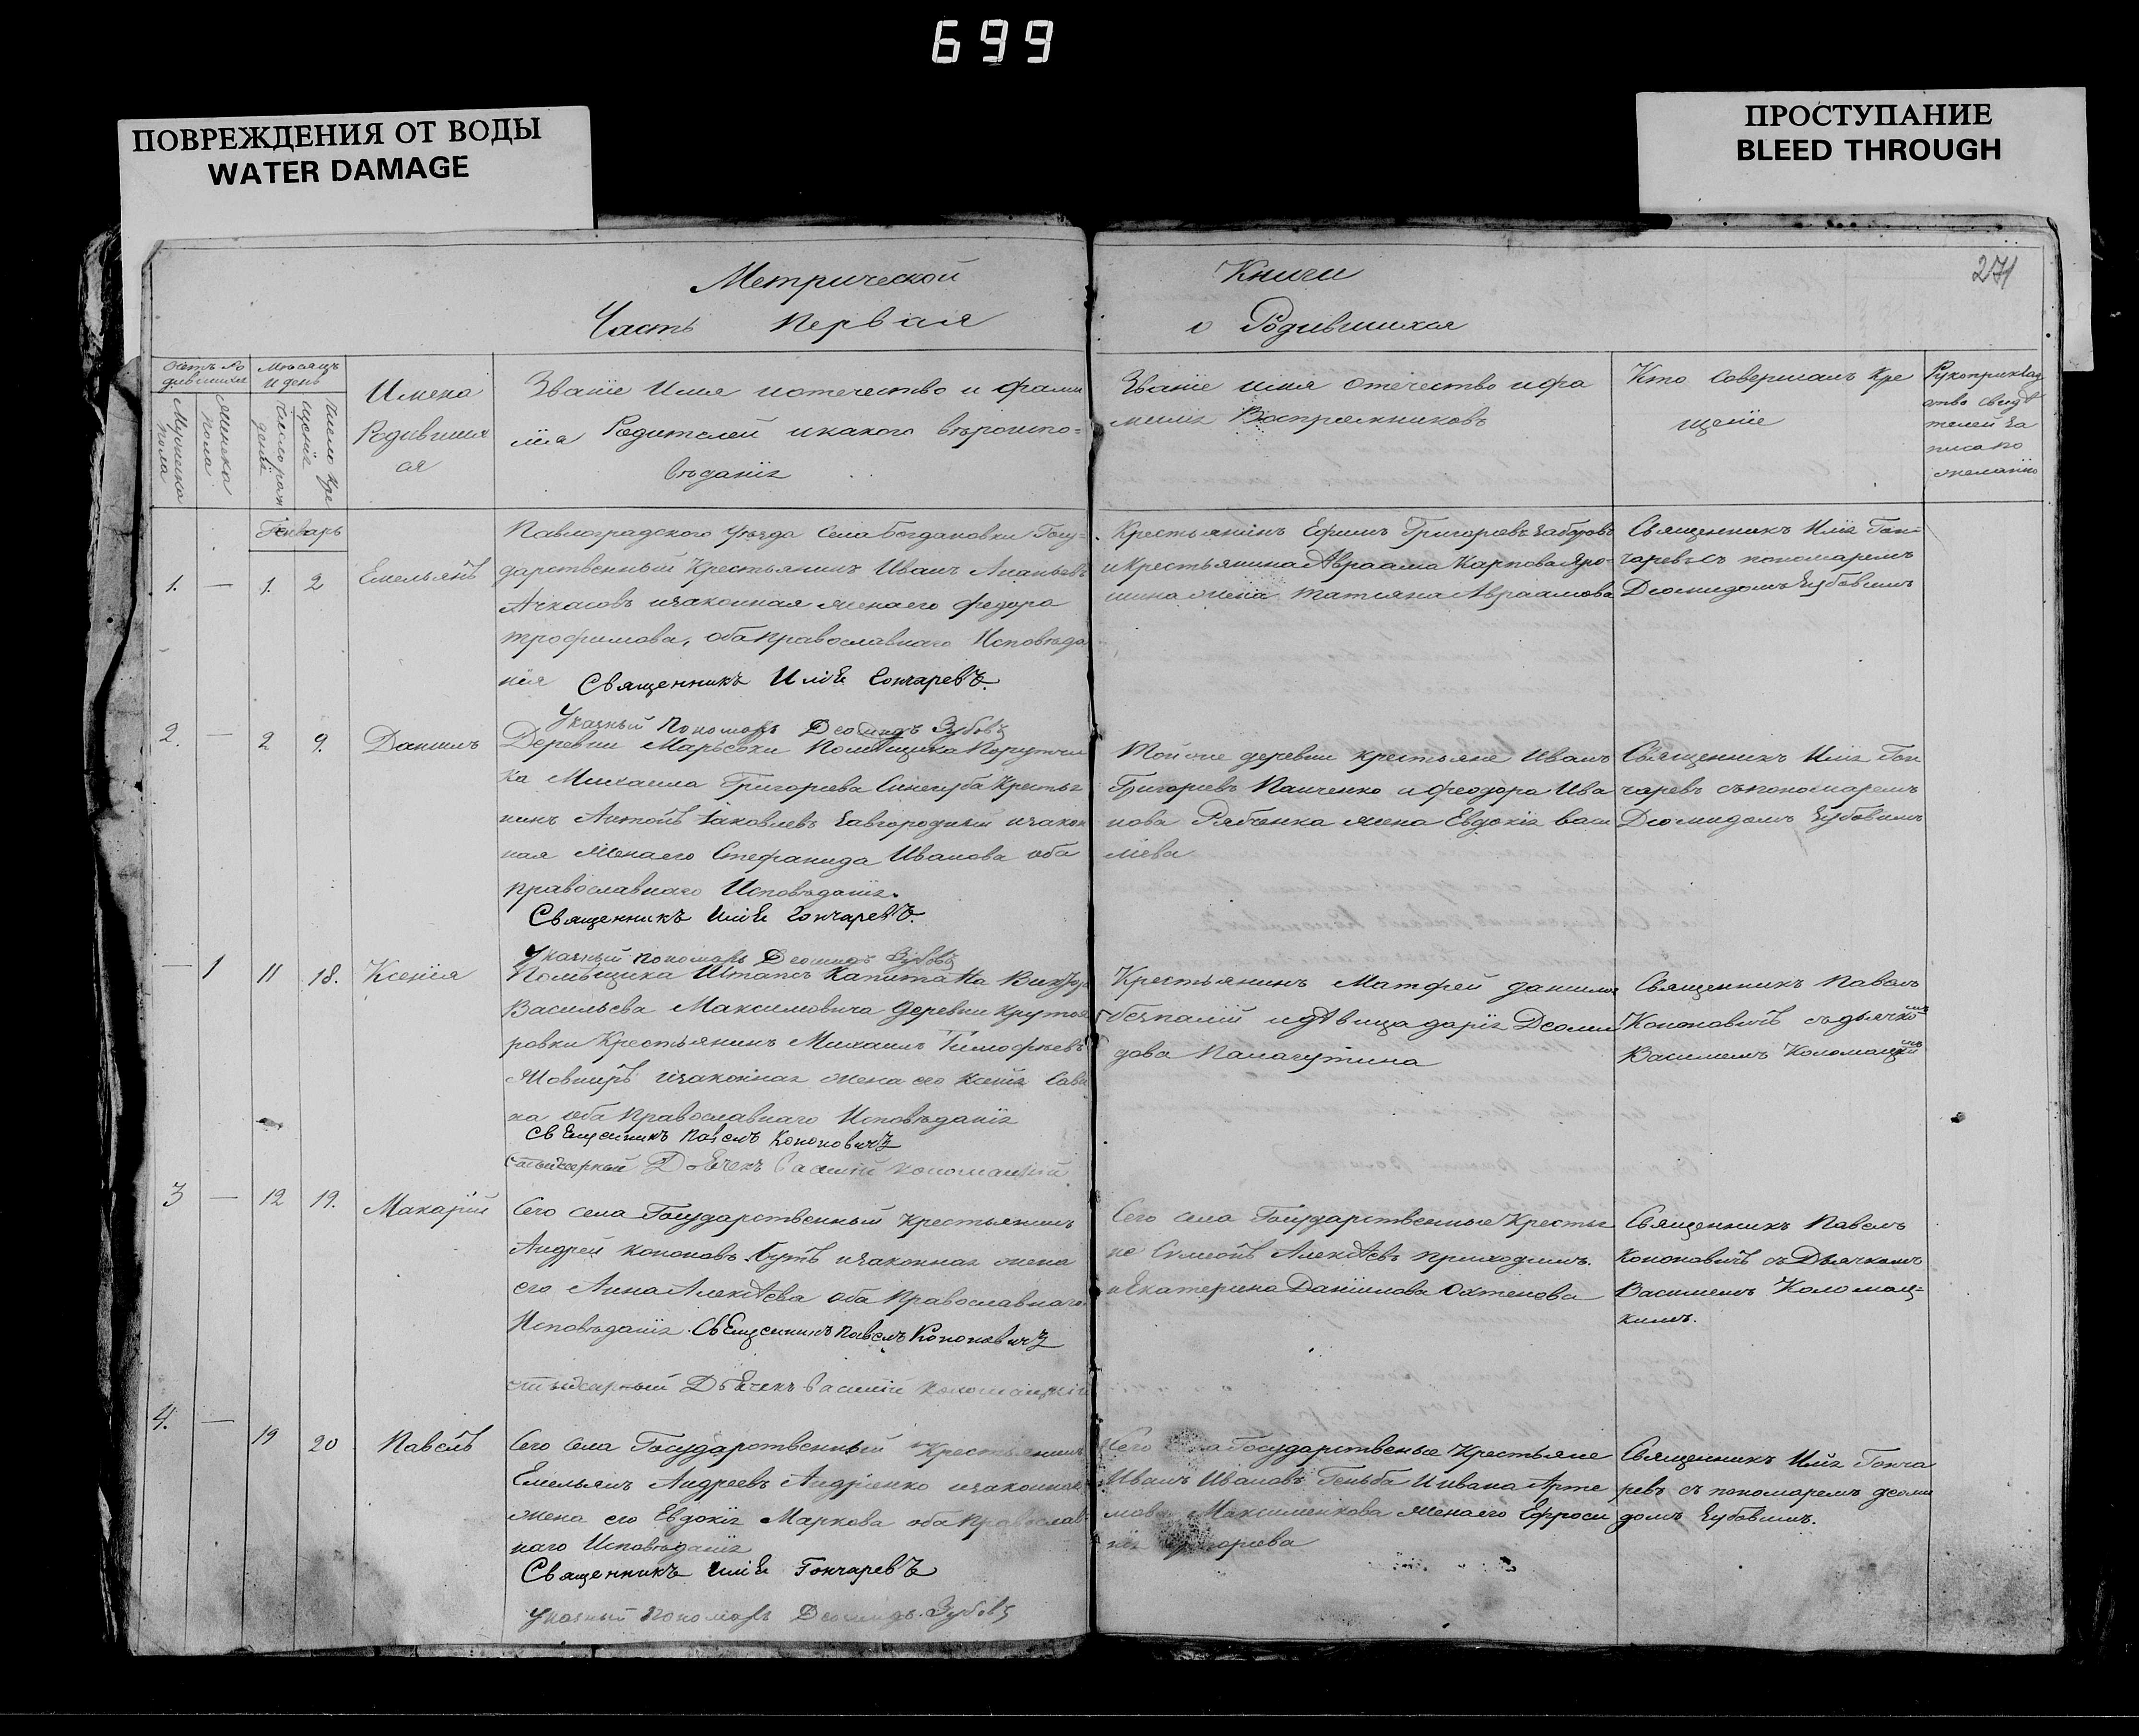 699
ПОВРЕЖДЕНИЯ ОТ ВОДЫ
WATER DAMAGE
ПРОСТУПАНИЕ
BLEED THROUGH
271
Метрической Книги
Часть Первая о Родившихся
Счетъ Ро
дившихся
Мужеска
пола
Женска
пола
Мѣсяцъ
и день
Число рож
денія
Число кре
щенія
Имена
Родивших
ся
Званіе Имя и отечество и фами
лія Родителей и какого вѣроиспо=
вѣданія
Званіе имя отечество и фа
милія Воспріемниковъ
Кто совершалъ кре
щеніе
Рукоприклад
ство свидѣ
телей за
писа по
желанію
Генварь
1. — 1. 2 Емельянъ
Павлоградского уѣзда села Богдановки Госу=
дарственный Крестьянинъ Иванъ Ананьевъ
Ачкасовъ и законная жена его Федора
трофимова, оба православнаго Исповѣда
нія Священникъ Илія Гончаревъ.
Указный пономарь Деомидъ Зубовъ
Крестьянинъ Ефимъ Григорьевъ
и крестьянина Авраама Карпова Яро
шина жена татьяна Авраамова
Священникъ Илія Гон-
чаревъ съ пономаремъ
Деомидомъ Зубовымъ
2. — 2 9. Даніилъ
Деревни Марьевки Помѣщика Поручи
ка Михаила Григорьева Синегуба Крестья
нинъ Антонъ Іаковлевъ Завгородній и закон
ная жена его Стефанида Иванова оба
православнаго Исповѣданія.
Священникъ Илія Гончаревъ.
Указный пономарь Деомидъ Зубовъ
Той же деревни крестьяне Иванъ
Григорьевъ Панченко и Феодора Ива
нова Рябченка жена Евдокія васи
лієва
Священникъ Илія Гон
чаревъ съ пономаремъ
Деомидомъ Зубовымъ
— 1 11 18. Ксенія
Помѣщика Штапсъ Капитана
Васильева Максимовича деревни Крутоя
ровки Крестьянинъ Михаилъ Тимофѣевъ
и законная жена его Савви
на оба православнаго Исповѣданія
Священникъ Павелъ Кононовичъ
стихарный Дьячекъ Василій Коломацкій
Крестьянинъ Матфей данилов
безпалій и дѣвица дарія Деоми
дова
Священникъ Павелъ
Кононовичъ съ дьячко
мъ
Василіемъ Коломацки
мъ
3 — 12 19. Макарій
Сего села Государственный крестьянинъ
Андрей Кононовъ Бутъ и законная жена
его Анна Алексѣева оба Православнаго
Исповѣданія Священникъ Павелъ Кононовичъ
стихарный Дьячекъ Василій Коломацкій
Сего села Государственные Крестья
не Симеонъ Алексѣевъ
и Екатерина Даніилова Охтенова
Священникъ Павелъ
Кононовичъ съ Дьячкомъ
Василіемъ Коломац=
кимъ.
4. — 19 20 Павелъ
Сего Села Государственный Крестьянинъ
Емельянъ Андреевъ Андріенко и законная
жена его Евдокія Маркова оба Православ
наго Исповѣданія
Священникъ Илія Гончаревъ
Указный Пономарь Деомидъ Зубовъ
Сего Государственые Крестьяне
Иванъ Ивановъ Геньба и ивана Арте
мова Максименкова жена его Ефроси
нія Григорьева
Священникъ Илія Гонча
ревъ съ пономаремъ деоми
домъ Зубовымъ.